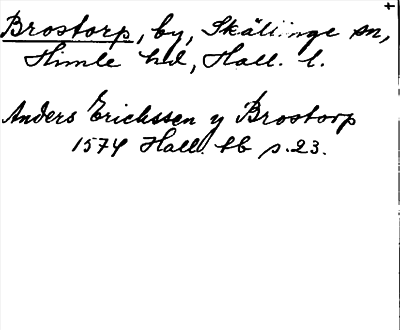 Brostorp, by, Skällinge sn,
Himle hd, Hall. l.
Anders Erichssen y Brostorp
1574 Hall. tb s. 23.